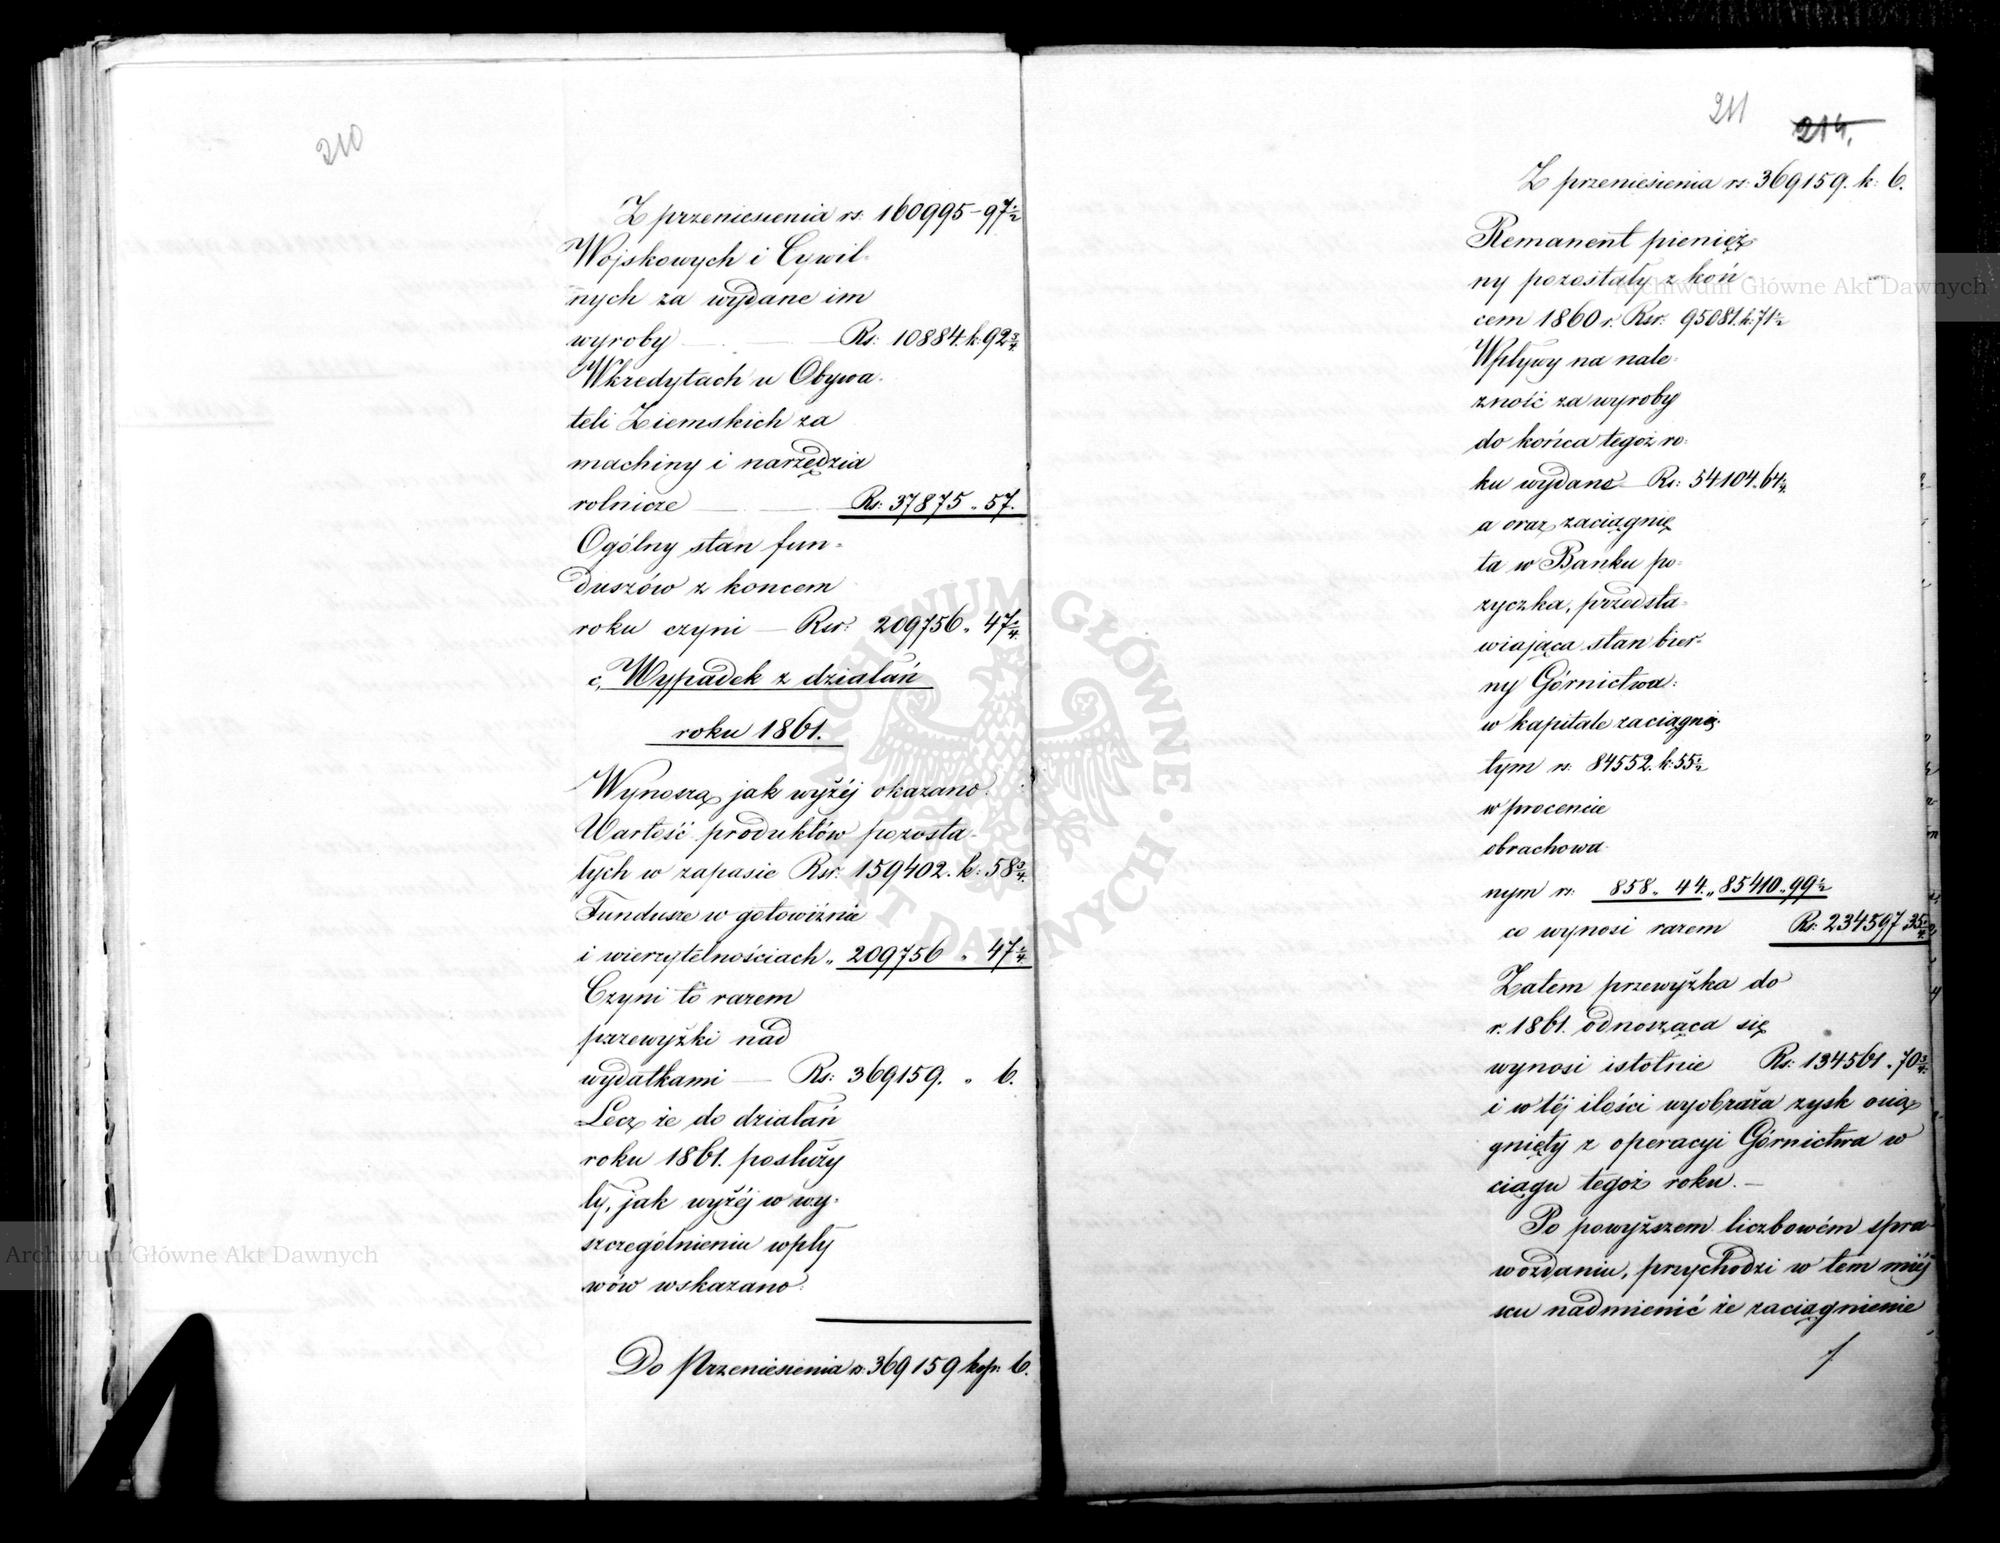 210
Z przeniesienia rs: 160995 - 97 1/2
Wojskowych i Cywil-
nych za wydane im
wyroby — Rs: 10884. k. 92 3/4.
W kredytach u Obywa-
teli Ziemskich za
machiny i narzędzia
rolnicze — Rs: 37875 „ 57.
Ogólny stan fun-
duszów z koncem
roku czyni — Rsr: 209756 „ 47 1/4.
c, Wypadek z działań
roku 1861.
Wynoszą jak wyżéj okazano:
Wartość produktów pozosta-
łych w zapasie Rsr: 159402. k: 58 3/4.
Fundusze w gotowiźnie
i wierzytelnościach „ 209756 „ 47 1/4.
Czyni to razem
przewyżki nad
wydatkami — Rs: 369159. „ 6.
Lecz że do działań
roku 1861. posłuży
ły, jak wyżéj w wy-
szczególnieniu wpły
wów wskazano:
Do Przeniesienia rs: 369159 kop: 6.
211
214.
Z przeniesienia rs: 369159. k: 6.
Remanent pienięż-
ny pozostały z koń-
cem 1860 r. Rsr: 95081. k: 71 1/2
Wpływy na nale-
żność za wyroby
do końca tegoż ro-
ku wydane — Rs: 54104. 64 1/4.
a oraz zaciągnię
ta w Banku po-
życzka, przedsta-
wiająca stan bier-
ny Górnictwa:
w kapitale zaciągnię-
tym rs: 84552. k: 55 1/2
w procencie
obrachowa-
nym rs: 858 „ 44. „ 85410 „ 99 1/2
co wynosi razem Rs: 234597 35 1/4
Zatem przewyżka do
r. 1861. odnosząca się
wynosi istotnie Rs: 134561 „ 70 3/4.
i w téj ilości wyobraża zysk osią
gnięty z operacyi Górnictwa w
ciągu tegoż roku. —
Po powyższem liczbowém spra-
wozdaniu, przychodzi w tem miéj
scu nadmienić że zaciągnienie
Archiwum Główne Akt Dawnych
Archiwum Główne Akt Dawnych
ARCHIWUM GŁÓWNE AKT DAWNYCH